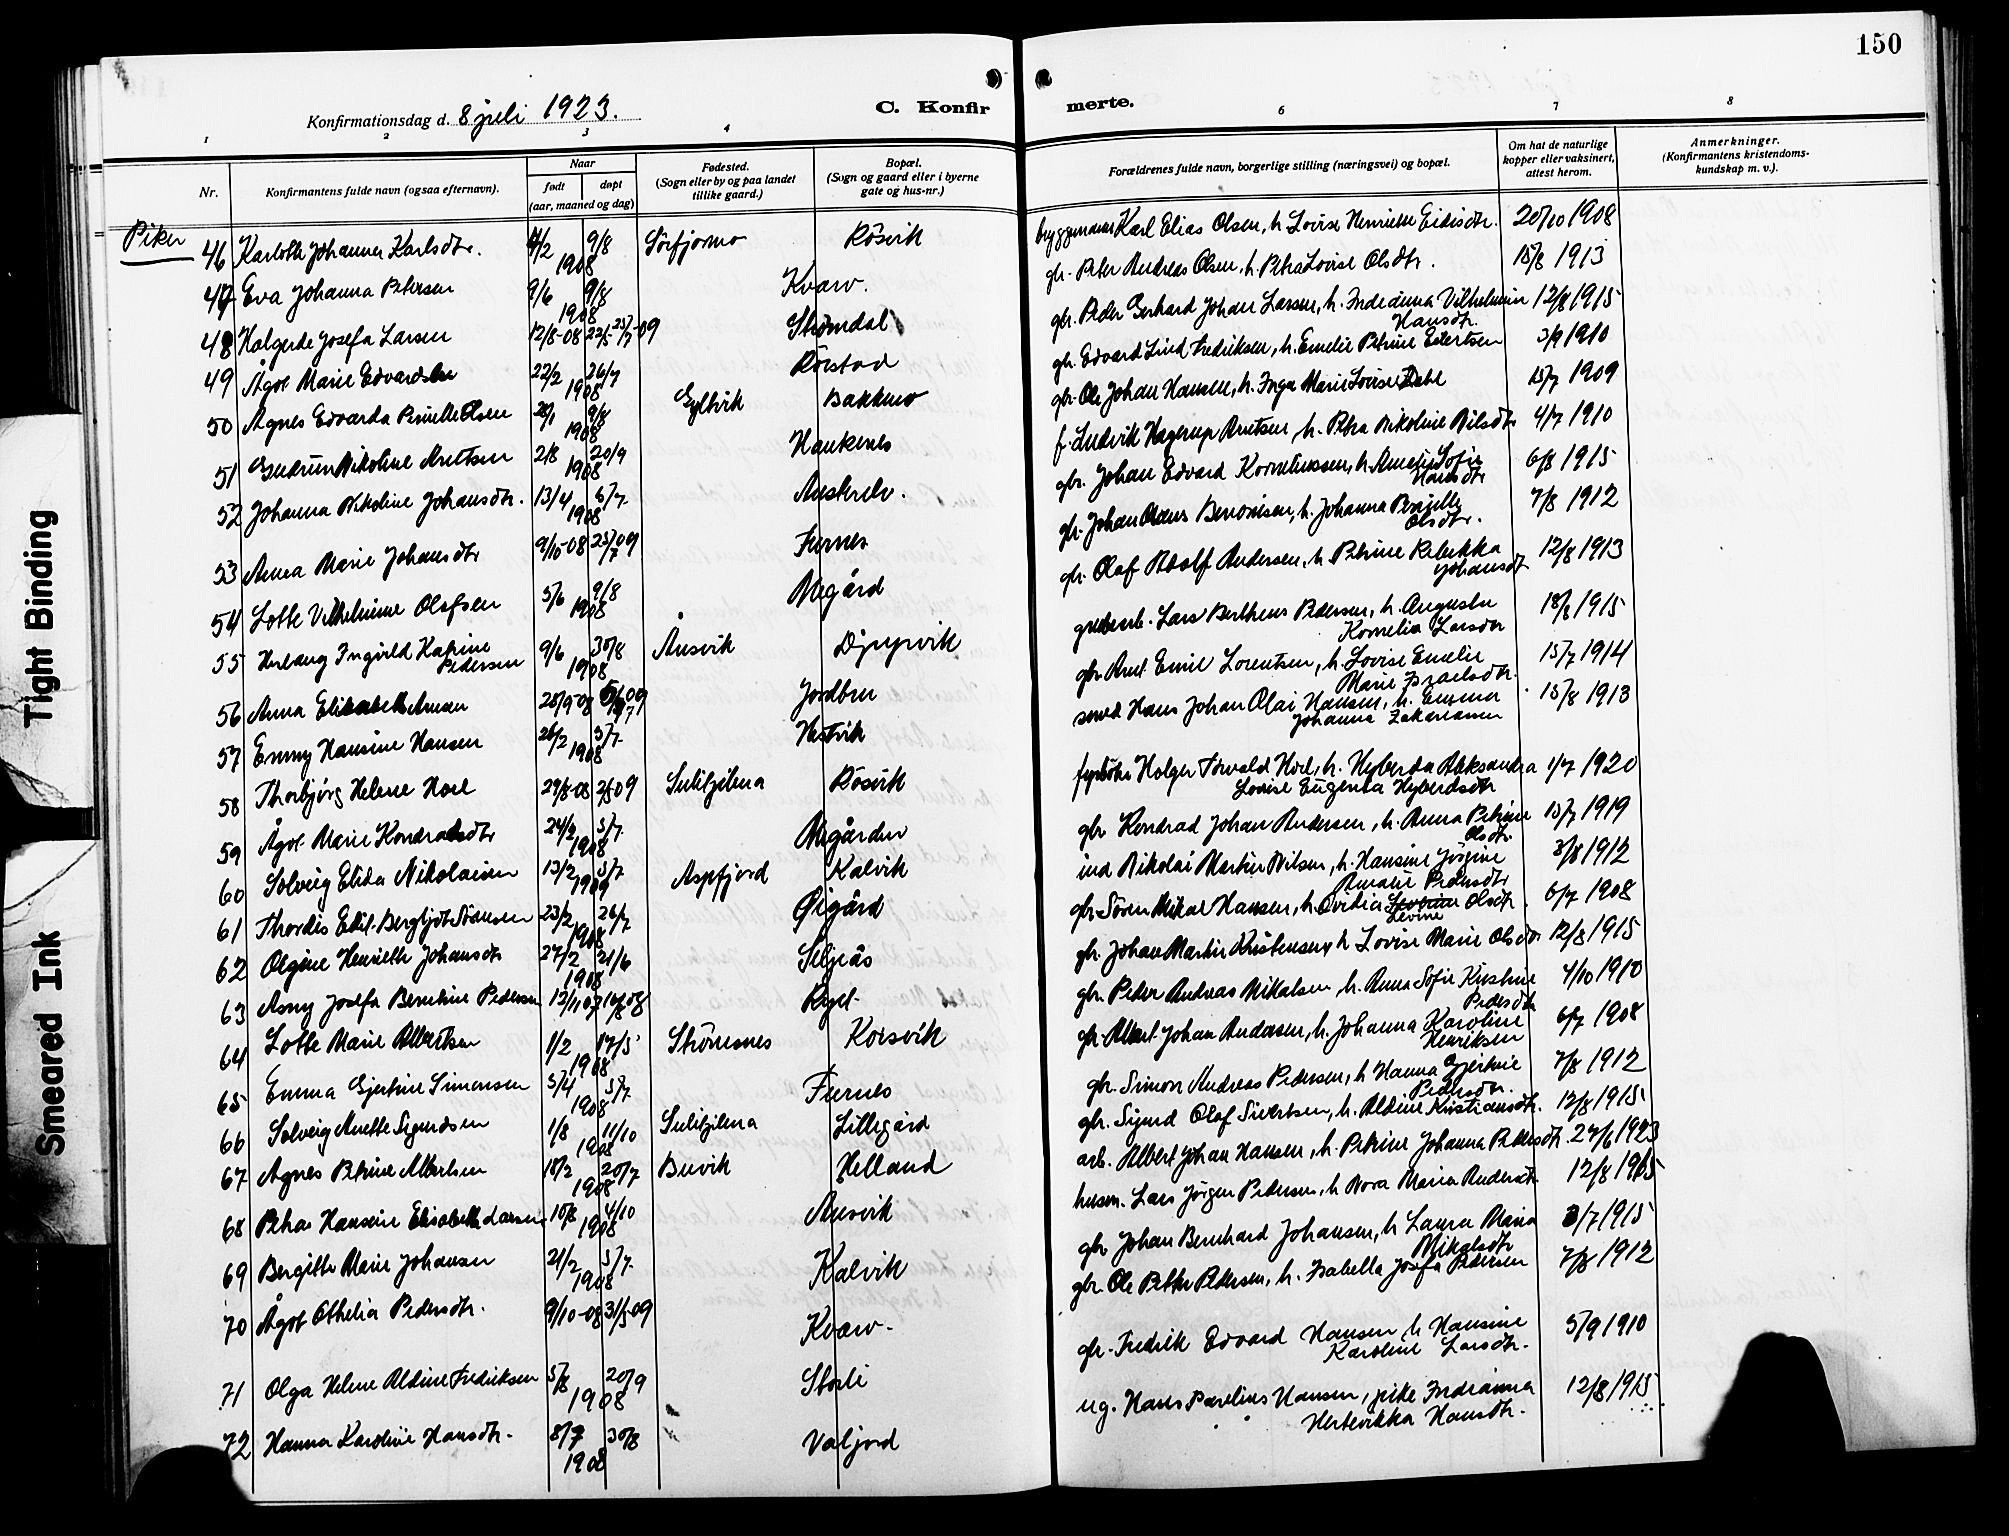 150
Konfirmationsdag d. 8 juli 1923.
C. Konfir
merte.
1 2 3 4
6 7 8
Nr.
Konfirmantens fulde navn (ogsaa efternavn).
Naar
født døpt
(aar, maaned og dag)
Fødested.
(Sogn eller by og paa landet
tillike gaard.)
Bopæl.
(Sogn og gaard eller i byerne
gate og hus-nr.)
Forældrenes fulde navn, borgerlige stilling (næringsvei) og bopæl.
Om hat de naturlige
kopper eller vaksinert,
attest herom.
Anmerkninger.
(Konfirmantens kristendoms-
kundskap m. v.).
Piker
46 Karlotte Johanna Karlsdtr. 9/8 1908 Sörfjormo Rösvik Karl Elias Olsen, h. Lovise Henriette Eidisdtr. 20/10 1908
47 Eva Johanna Petersen 9/6 9/8 1908 Kvarv. gbr. Peter Andreas Olsen, h. Petra Lovise Olsdtr. 15/8 1913
48 Halgerde Josefa Larsen 12/8-08 Strømdal gbr. Peder Gerhard Johan Larsen, h. Indianna Vilhelmin Hansdtr. 12/8 1915
49 Ågot Marie Edvardsen 22/2 26/7 1908 Rörstad gbr. Edvard Lind Fredriksen, h. Emelie Petrine Evertsen 3/9 1910
50 Agnes Edvarda Pernille Olsen 9/8 1908 Gyltvik Bakkmo gbr. Ole Johan Hansen, h. Inga Marie Lovise Dahl 15/7 1909
51 Gudrun Nikoline Arntsen 2/8 20/9 1908 Haukenes f. Ludvik Hagerup Arntsen, h. Petra Nikoline Nilsdtr 4/7 1910
52 Johanna Nikoline Johansdtr. 13/4 5/7 1908 Austerelv. gbr. Johan Edvard Korneliussen, h. Amalie Sofie Hansdtr 6/8 1915
53 Anna Marie Johansdtr 9/10-08 25/7 09 Furnes gbr. Johan Claus Benonisen, h. Johanna Pernille Olsdtr. 7/8 1912
54 Lotte Vilhelmine Olafsen 5/6 9/8 1908 Megård gbr. Olaf Adolf Andersen, h. Petrine Rebekka Johansdt 12/8 1913
55 Herlaug Ingvild Katrine Pedersen 9/6 30/8 1908 Ånsvik Djupvik grubearb. Lars Bertheus Pedersen, h. Augusta Kornelia Larsdtr 18/8 1915
56 Anna Elisabeth Arnsen 28/9-08 Jordbru gbr. Arnt Emil Lorentsen, h. Lovise Emelie Marie Israelsdtr. 15/7 1914
57 Emmy Hansine Hansen 26/2 5/7 1908 Hestvik smed Hans Johan Olai Hansen, h. Emma Johanna Zakariasen 15/8 1913
58 Thorbjørg Helene Hoel 29/8-08 Sulitjelma Rösvik Holger Torvald Hoel, h. Hyberda Aleksandra Lovise Eugenia Hyberdsdtr 1/7 1920
59 Ågot Marie Kondradsdtr 24/2 5/7 1908 Megården gbr Kondrad Johan Andersen, h. Anna Petrine Olsdtr. 15/7 1919
60 Solveig Elida Nikolaisen 13/2 5/7 Aspfjord Kalvik ind Nikolai Martin Nilsen, h. Hansine Jörgine Amalie Pedersdtr 3/8 1912
61 Thordis Edel-Bergljot Sörensen 23/2 26/7 1908 Øigård gbr Sören Mikal Hansen, h. Ovidia Levine Olsdtr. 6/7 1908
62 Olgine Henriette Johansdtr 27/2 21/6 1908 Seljeås gbr. Johan Martin Kristensen, h Lovise Marie Olsdtr 12/8 1915
63 Asny Josefa Berntine Pedersen 13/11 07 gbr. Peder Andreas Mikalsen, h. Anna Sofie Kristine Pedersdtr 4/10 1910
64 Lotte Marie Albertsen 1/2 17/5 1908 Strömsnes Korsvik gbr. Albert Johan Andersen, h. Johanna Karoline Henriksen 6/7 1908
65 Emma Gjertine Simonsen 5/4 5/7 1908 Furnes gbr. Simon Andreas Pedersen, h Hanna Gjertine Pedersdtr. 7/8 1912
66 Solveig Anette Sigurdsen 1/8 11/10 1908 Sulitjelma Lillegård gbr. Sigurd Olaf Sivertsen, h. Aldine Kristiansdtr. 12/8 1915
67 Agnes Petrine Albertsen 18/2 20/7 1908 Buvik Helland arb. Albert Johan Hansen, h. Petrine Johanna Pedersdtr. 27/6 1923
68 Petra Hansine Elisabeth Larsen 10/8 4/10 1908 Ånsvik husm. Lars Jörgen Pedersen, h Nora Maria Andersdtr. 12/8 1915
69 Bergitte Marie Johansen 21/2 5/7 1908 Kalvik gbr Johan Bernhard Johansen, h Laura Maria Mikalsdtr 3/7 1915
70 Ågot Othelia Pedersdtr. 9/10-08 31/5 09 Kvarv. gbr. Ole Petter Pedersen, h. Isabella Josefa Pedersen 7/8 1912
71 Olga Helene Aldine Fredriksen 5/8 20/9 1908 Storli gbr. Fredrik Edvard Hansen h Hansine Karoline Larsdtr. 5/9 1910
72 Hanna Karoline Hansdtr. 8/7 30/8 1908 Valjord ug. Hans Parelius Hansen, pike Indianna Hertevikka Hansdtr. 12/8 1915
Tight Binding
Smeared Ink